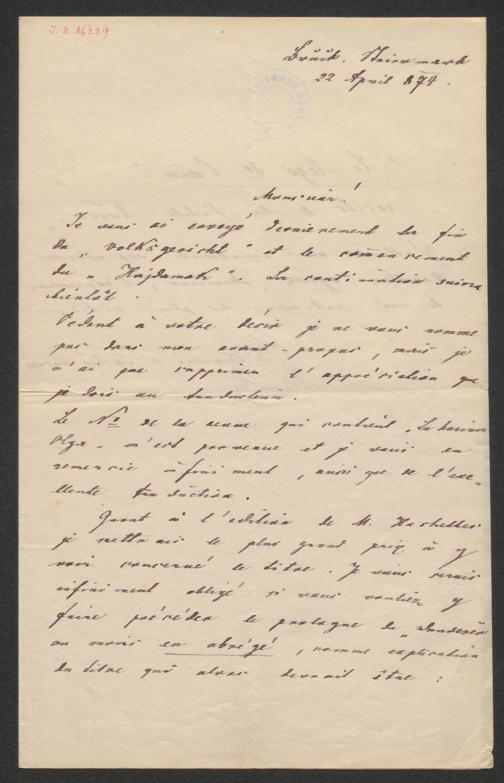 J. N. 86229
Bruck. Steiermark
22 April 874.
Monsieur!
Je vous ai envoyé dernièrement la fin
du „Volksgericht" et le commencement
du „Hajdamak". La continuation suivra
bientôt.
Cédant à votre désir je ne vous nomme
pas dans mon avant-propos, mais je
n'ai pas supprimer l'appréciation que
je dois au traducteur.
Le No de la revue qui contient „La barina
Olga" m'est parvenue et je vous en
remercie infiniment, ainsi que de l'exce-
llente traduction.
Quant à l'edition de M. Hachettes
je mettrais le plus grand prix à y
voir conservé le titre. Je vous serais
infiniment obligé si vous vouliez y
faire précéder le prologue de „
au moins en abrégé, comme explication
du titre qui alors devrait être :